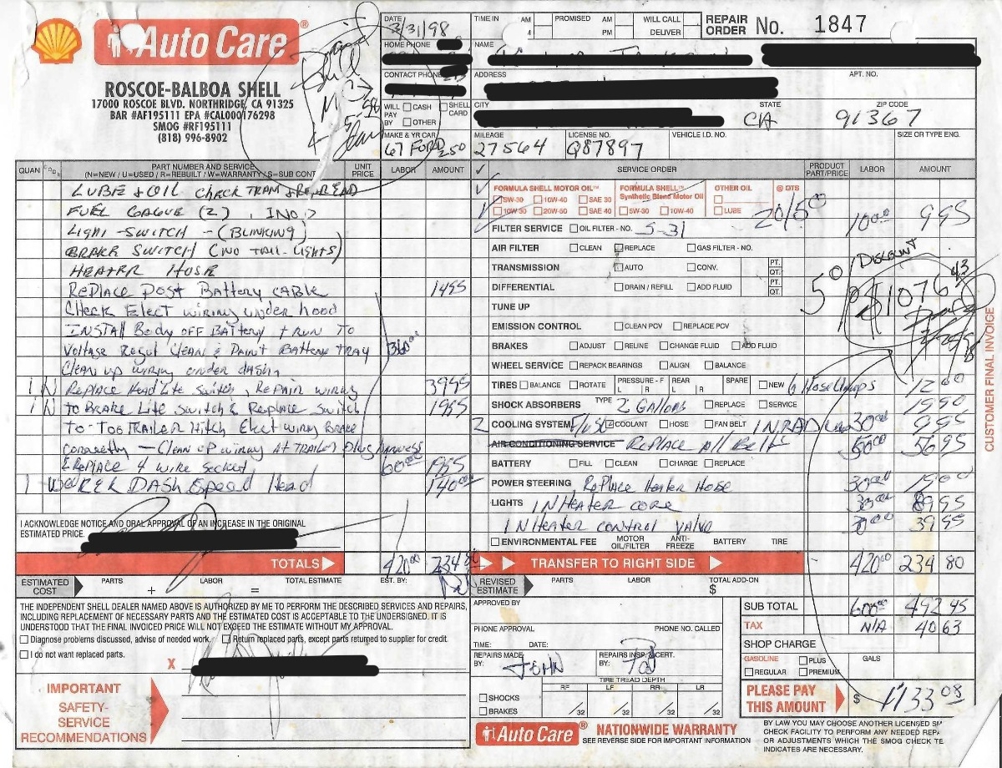 Auto Care®
ROSCOE-BALBOA SHELL
17000 ROSCOE BLVD. NORTHRIDGE, CA 91325
BAR #AF195111 EPA #CAL000176298
SMOG #RF195111
(818) 996-8902
DATE 3/31/98
TIME IN AM PM
PROMISED AM PM
WILL CALL DELIVER
REPAIR ORDER No. 1847
HOME PHONE
NAME
CONTACT PHONE
ADDRESS
APT. NO.
WILL PAY BY CASH SHELL CARD OTHER
CITY
STATE CA
ZIP CODE 91367
MAKE & YR CAR 67 FORD 250
MILEAGE 27564
LICENSE NO. Q87897
VEHICLE I.D. NO.
SIZE OR TYPE ENG.
QUAN PART NUMBER AND SERVICE UNIT PRICE LABOR AMOUNT
(N=NEW / U=USED / R=REBUILT / W=WARRANTY / S=SUB CONT
LUBE & OIL CHECK TRAM
FUEL GAUGE (2), INO.
LIGHT-SWITCH - (BLINKING)
BRAKE SWITCH (NO TAIL-LIGHTS)
HEATER HOSE
REPLACE POST BATTERY CABLE 1495
CHECK ELECT WIRING UNDER HOOD
INSTALL BODY OFF BATTERY & RUN TO
VOLTAGE REGUL CLEAN & PAINT BATTERY TRAY 360
CLEAN UP WIRING UNDER DASH,
1 N REPLACE HEADLITE SWITCH, REPAIR WIRING 3995
1 N TO BRAKE LITE SWITCH & REPLACE SWITCH 1995
TO- TOGTRAILER HITCH ELECT WIRING BRAKE
CORRECTLY - CLEAN UP WIRING AT TRAILER PLUG HARNESS
& REPLACE 4 WIRE SOCKET 6000 1995
DASH SPEED HEAD 14000
I ACKNOWLEDGE NOTICE AND ORAL APPROVAL OF AN INCREASE IN THE ORIGINAL
ESTIMATED PRICE.
TOTALS 42000 23480
ESTIMATED COST PARTS + LABOR = TOTAL ESTIMATE EST. BY:
THE INDEPENDENT SHELL DEALER NAMED ABOVE IS AUTHORIZED BY ME TO PERFORM THE DESCRIBED SERVICES AND REPAIRS,
INCLUDING REPLACEMENT OF NECESSARY PARTS AND THE ESTIMATED COST IS ACCEPTABLE TO THE UNDERSIGNED. IT IS
UNDERSTOOD THAT THE FINAL INVOICED PRICE WILL NOT EXCEED THE ESTIMATE WITHOUT MY APPROVAL.
Diagnose problems discussed, advise of needed work. Return replaced parts, except parts returned to supplier for credit.
I do not want replaced parts.
X
IMPORTANT
SAFETY-
SERVICE
RECOMMENDATIONS
SERVICE ORDER PRODUCT PART/PRICE LABOR AMOUNT
FORMULA SHELL MOTOR OIL™ FORMULA SHELL™ Synthetic Blend Motor Oil OTHER OIL @ QTS
5W-30 10W-40 SAE 30
10W-30 20W-50 SAE 40 5W-30 10W-40 LUBE 20/50
FILTER SERVICE OIL FILTER - NO. S-31 1000 995
AIR FILTER CLEAN REPLACE GAS FILTER - NO.
5% DISCOUNT
TRANSMISSION AUTO CONV. PT. QT.
DIFFERENTIAL DRAIN / REFILL ADD FLUID PT. QT.
$1076 43
TUNE UP
EMISSION CONTROL CLEAN PCV REPLACE PCV
BRAKES ADJUST RELINE CHANGE FLUID ADD FLUID
WHEEL SERVICE REPACK BEARINGS ALIGN BALANCE
TIRES BALANCE ROTATE PRESSURE - F R L REAR R L SPARE NEW 6 HOSE CLAMPS 1200
SHOCK ABSORBERS TYPE 2 GALLONS REPLACE SERVICE 1990
2 COOLING SYSTEM COOLANT HOSE FAN BELT 3000 995
AIR CONDITIONING SERVICE REPLACE ALL BELTS 5000 5695
BATTERY FILL CLEAN CHARGE REPLACE
POWER STEERING REPLACE HEATER HOSE 3000 1900
LIGHTS 1 N HEATER CORE 8995
1 N HEATER CONTROL VALVE 3995
ENVIRONMENTAL FEE MOTOR OIL/FILTER ANTI-FREEZE BATTERY TIRE
TRANSFER TO RIGHT SIDE 42000 234 80
REVISED ESTIMATE PARTS LABOR TOTAL ADD-ON $
APPROVED BY
PHONE APPROVAL PHONE NO. CALLED
TIME: DATE:
REPAIRS MADE BY: JOHN REPAIRS INSP./CERT. BY:
TIRE TREAD DEPTH
RF LF RR LR
SHOCKS
BRAKES /32 /32 /32 /32
SUB TOTAL 60000 492 45
TAX N/A 40 63
SHOP CHARGE
GASOLINE PLUS GALS
REGULAR PREMIUM
PLEASE PAY THIS AMOUNT $ 1133 08
Auto Care® NATIONWIDE WARRANTY
SEE REVERSE SIDE FOR IMPORTANT INFORMATION
BY LAW YOU MAY CHOOSE ANOTHER LICENSED
CHECK FACILITY TO PERFORM ANY NEEDED REPA
OR ADJUSTMENTS WHICH THE SMOG CHECK TE
INDICATES ARE NECESSARY.
CUSTOMER FINAL INVOICE